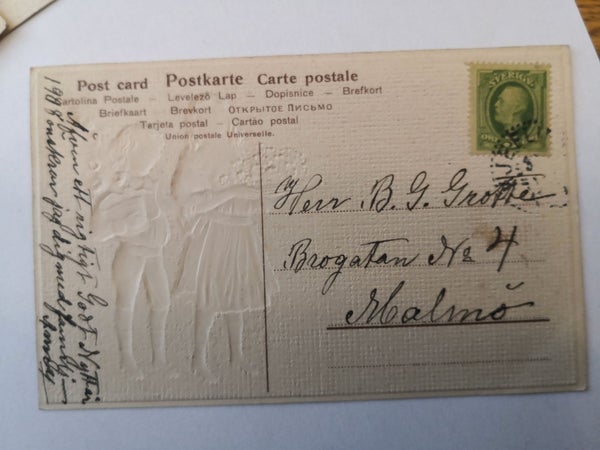 Post card Postkarte Carte postale
Cartolina Postale – Levelező Lap – Dopisnice – Brefkort
Briefkaart – Brevkort – ОТКРЫТОЕ ПИСЬМО
Tarjeta postal – Cartão postal
Union postale Universelle.
SVERIGE
Herr B. G. Grotte
Brogatan No 4
Malmö
ett rigtigt Godt Nytt år
1908 önskar jag dig med familj